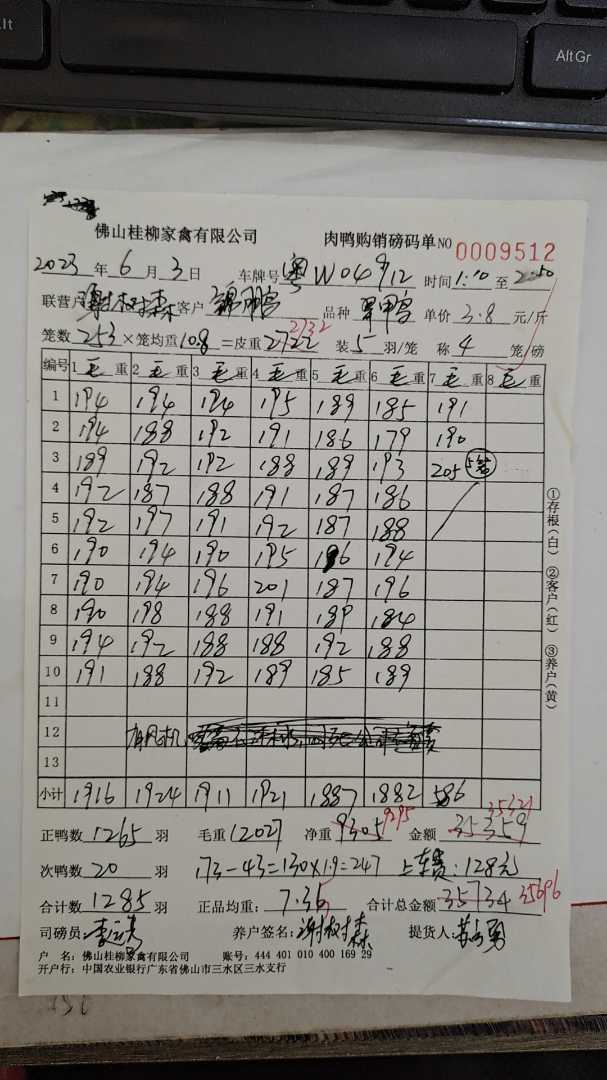 lt
AltGr
佛山桂柳家禽有限公司 肉鸭购销磅码单 NO 0009512
2023 年 6 月 3 日 车牌号 粤W04912 时间 1:10 至
联营户 谢树森 客户 锦鹏 品种 单价 3.8 元/斤
笼数 253 ×笼均重 10.8 =皮重 2722 2732 装 5 羽/笼 称 4 笼/磅
编号 1 毛 重 2 毛 重 3 毛 重 4 毛 重 5 毛 重 6 毛 重 7 毛 重 8 毛 重
1 194 194 194 195 189 185 191
2 194 188 192 191 186 179 190
3 189 192 192 188 189 193 205 5笼
4 192 187 188 191 187 186
5 192 197 191 192 187 188
6 190 194 190 195 196 194
7 190 194 196 201 187 196
8 190 198 188 191 189 184
9 194 192 188 188 192 188
10 191 188 192 189 185 189
11
12 有风机
13
小计 1916 1924 1911 1921 1887 1882 586
正鸭数 1265 羽 毛重 12027 净重 9305 9295 金额 35359 35321
次鸭数 20 羽 173-43=130×1.9=247 上车费:128元
合计数 1285 羽 正品均重: 7.36 合计总金额 35734 35696
司磅员: 养户签名: 谢树森 提货人:
户 名: 佛山桂柳家禽有限公司 账号: 444 401 010 400 169 29
开户行: 中国农业银行广东省佛山市三水区三水支行
①存根(白) ②客户(红) ③养户(黄)